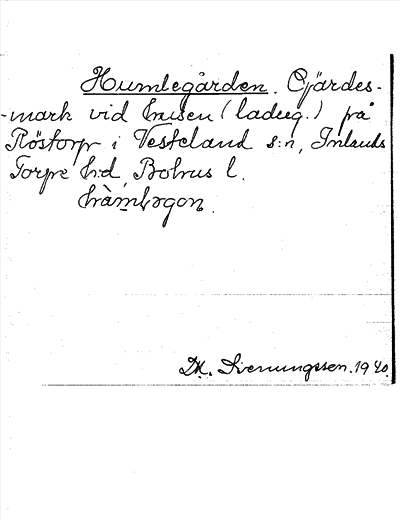 Humlegården. Gjärdes-
-mark vid husen (ladug.) på
Röstorp i Västerland s:n, Inlands
Torpe h:d, Bohus l.
M. Svenungssen. 1940.